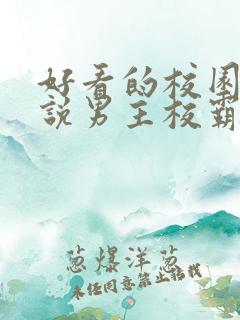 好看的校园
說男主校霸
葱爆洋葱
未经同意禁止转载